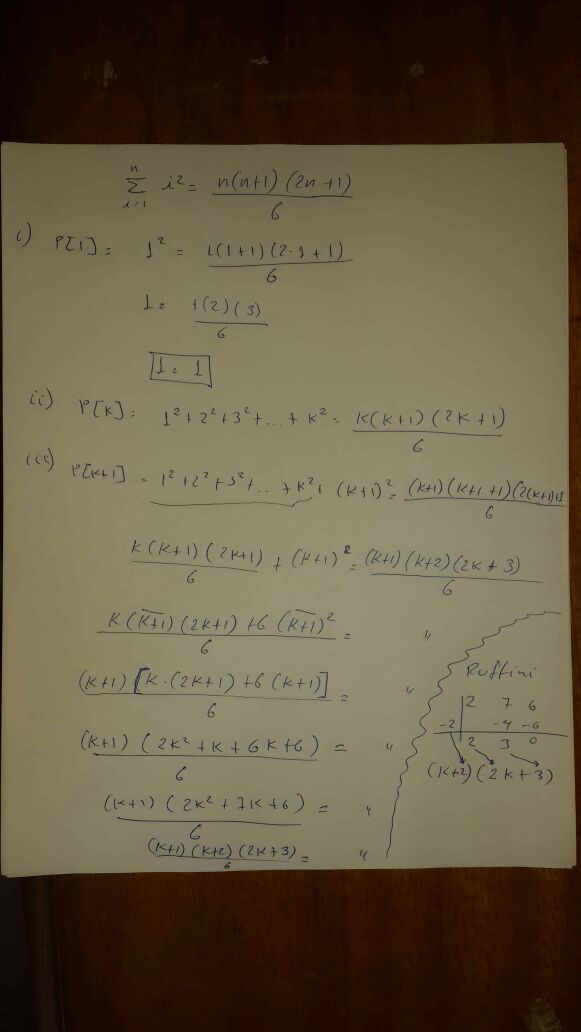 n
Σ i² = n(n+1)(2n+1)
i=1 6
i) P[1] = 1² = 1(1+1)(2·1+1)
6
1 = 1(2)(3)
6
1 = 1
ii) P[k] = 1²+2²+3²+...+k² = k(k+1)(2k+1)
6
iii) P[k+1] = 1²+2²+3²+...+k²+(k+1)² = (k+1)(k+1+1)(2(k+1)+1
6
k(k+1)(2k+1) + (k+1)² = (k+1)(k+2)(2k+3)
6 6
k(k+1)(2k+1)+6(k+1)² = "
6
(k+1)[k·(2k+1)+6(k+1)] = "
6
(k+1)(2k²+k+6k+6) = "
6
(k+1)(2k²+7k+6) = "
6
(k+1)(k+2)(2k+3) = "
6
Ruffini
2 7 6
-2 -4 -6
2 3 0
(k+2)(2k+3)